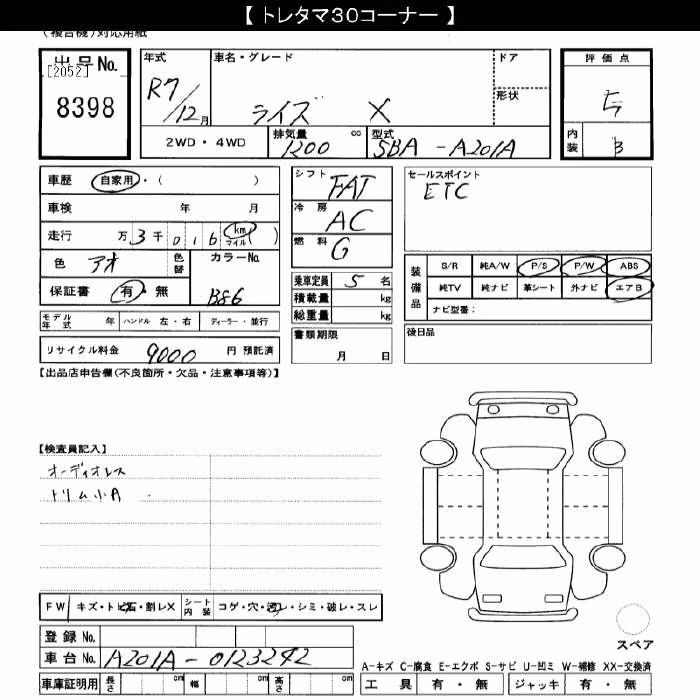 【 トレタマ30コーナー 】
(複合機)対応用紙
出品No.
[2052]
8398
年式
R7/12月
車名・グレード
ライズ X
ドア
形状
2WD・4WD
排気量 cc
1200
型式
5BA-A201A
評価点
5
内装
B
車歴 自家用・( )
車検 年 月
走行 万 3千 0 1 6 km マイル ( )
色 アオ 色替
カラーNo.
B86
保証書 有・無
モデル年式 年 ハンドル 左・右 ディーラー・並行
リサイクル料金 9000 円 預託済
シフト FAT
冷房 AC
燃料 G
乗車定員 5 名
積載量 kg
総重量 kg
書類期限
月 日
セールスポイント
ETC
装備品
S/R 純A/W P/S P/W ABS
純TV 純ナビ 革シート 外ナビ エアB
ナビ型番:
後日品
【出品店申告欄(不良箇所・欠品・注意事項等)】
【検査員記入】
オーディオレス
トリム小A
FW キズ・トビ石・割レX シート内装 コゲ・穴・汚レ・シミ・破レ・スレ
登録No.
車台No. A201A-0123242
車庫証明用 長さ cm 幅 cm 高さ cm
スペア
A-キズ C-腐食 E-エクボ S-サビ U-凹ミ W-補修 XX-交換済
工具 有・無 ジャッキ 有・無